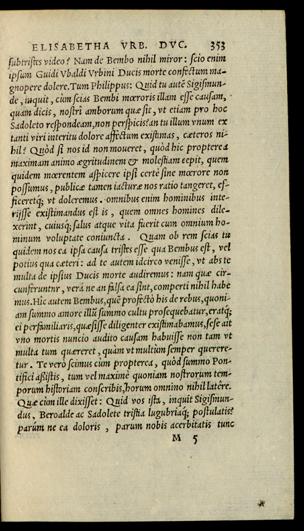 ELISABETHA VRB. DVC. 353
subtristes video? Nam de Bembo nihil miror: scio enim
ipsum Guidi Vbaldi Vrbini Ducis morte confectum ma-
gnopere dolere. Tum Philippus: Quid tu autē Sigismun-
de, inquit, cùm scias Bembi mœroris illam esse causam,
quam dicis, nostri amborum quæ sit, vt etiam pro hoc
Sadoleto respondeam, non perspicis? an tu illum vnum ex
tanti viri interitu dolore affectum existimas, cæteros ni-
hil? Quòd si nos id non moueret, quòd hic propterea
maximam animo ægritudinem & molestiam cepit, quem
quidem mœrentem aspicere ipsi certè sine mœrore non
possumus, publicæ tamen iacturæ nos ratio tangeret, ef-
ficeretq; vt doleremus. omnibus enim hominibus inte-
rijsse existimandus est is, quem omnes homines dile-
xerint, cuiusq; salus atque vita fuerit cum omnium ho-
minum voluptate coniuncta. Quam ob rem scias tu
quidem nos ea ipsa causa tristes esse qua Bembus est, vel
potius qua cæteri: ad te autem idcirco venisse, vt abs te
multa de ipsius Ducis morte audiremus: nam quæ cir-
cunferuntur, vera ne an falsa ea sint, comperti nihil habe
mus. Hic autem Bembus, quē profectò his de rebus, quoni-
am summo amore illū summo cultu prosequebatur, eratq;
ei perfamiliaris, quæsisse diligenter existimabamus, sese ait
vno mortis nuncio audito causam habuisse non tam vt
multa tum quæreret, quàm vt multùm semper querere-
tur. Te verò scimus cùm propterea, quòd summo Pon-
tifici assistis, tum vel maximè quoniam nostrorum tem-
porum historiam conscribis, horum omnino nihil latêre.
Quæ cùm ille dixisset: Quid vos ista, inquit Sigismun-
dus, Beroalde ac Sadolete tristia lugubriaq; postulatis?
parùm ne ea doloris, parum nobis acerbitatis tunc
M 5